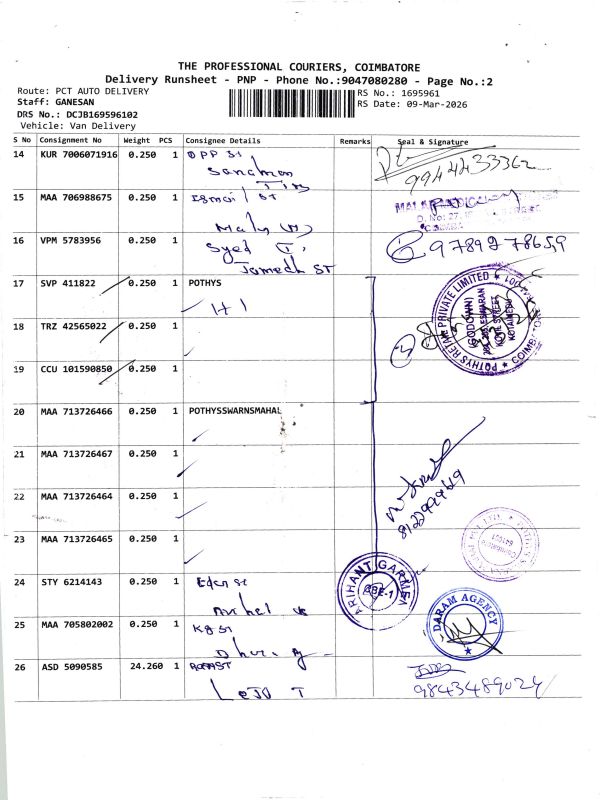 THE PROFESSIONAL COURIERS, COIMBATORE
Delivery Runsheet - PNP - Phone No.:9047080280 - Page No.:2
Route: PCT AUTO DELIVERY
Staff: GANESAN
DRS No.: DCJB169596102
Vehicle: Van Delivery
RS No.: 1695961
RS Date: 09-Mar-2026
S No Consignment No Weight PCS Consignee Details Remarks Seal & Signature
14 KUR 7006071916 0.250 1 OPP St
9944433362
15 MAA 706988675 0.250 1 Ismail ST
16 VPM 5783956 0.250 1 Syed
Jamedh ST
9789278659
17 SVP 411822 0.250 1 POTHYS
H 1
POTHYS RETAIL PRIVATE LIMITED
(GODOWN)
STREET
18 TRZ 42565022 0.250 1
19 CCU 101590850 0.250 1
20 MAA 713726466 0.250 1 POTHYSSWARNSMAHAL
21 MAA 713726467 0.250 1
22 MAA 713726464 0.250 1
8122999619
23 MAA 713726465 0.250 1
24 STY 6214143 0.250 1
ARIHANT GARMEN
CBE-1
DARAM AGENCY
25 MAA 705802002 0.250 1 KG St
26 ASD 5090585 24.260 1
9843489024